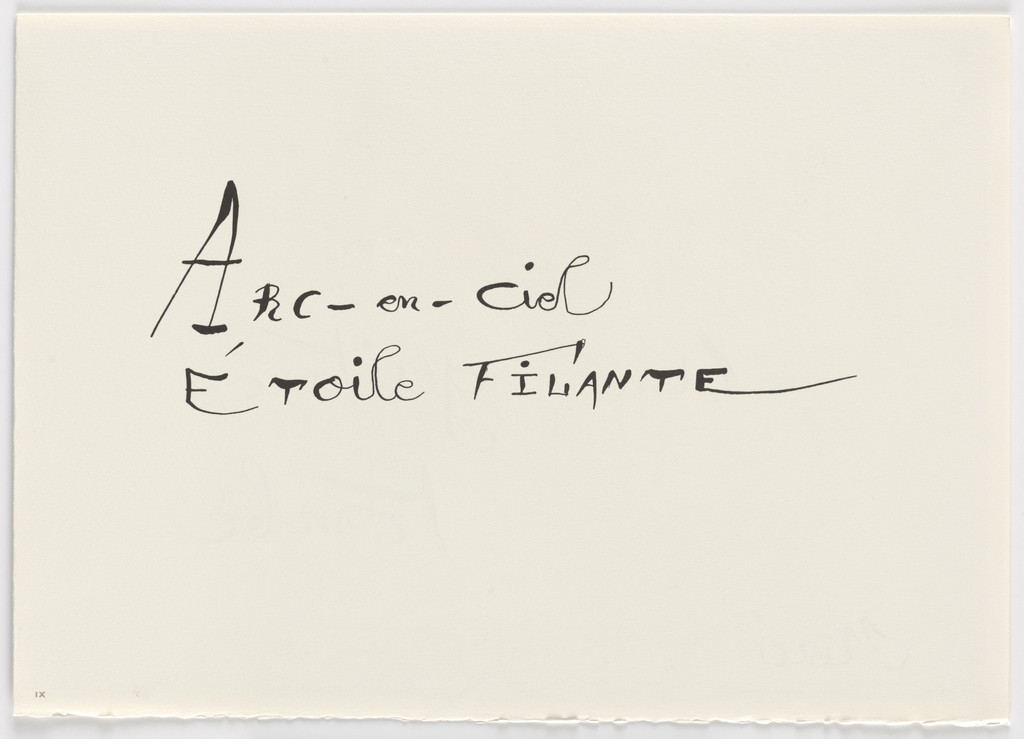 Arc-en-Ciel
Étoile FiLANTE
IX